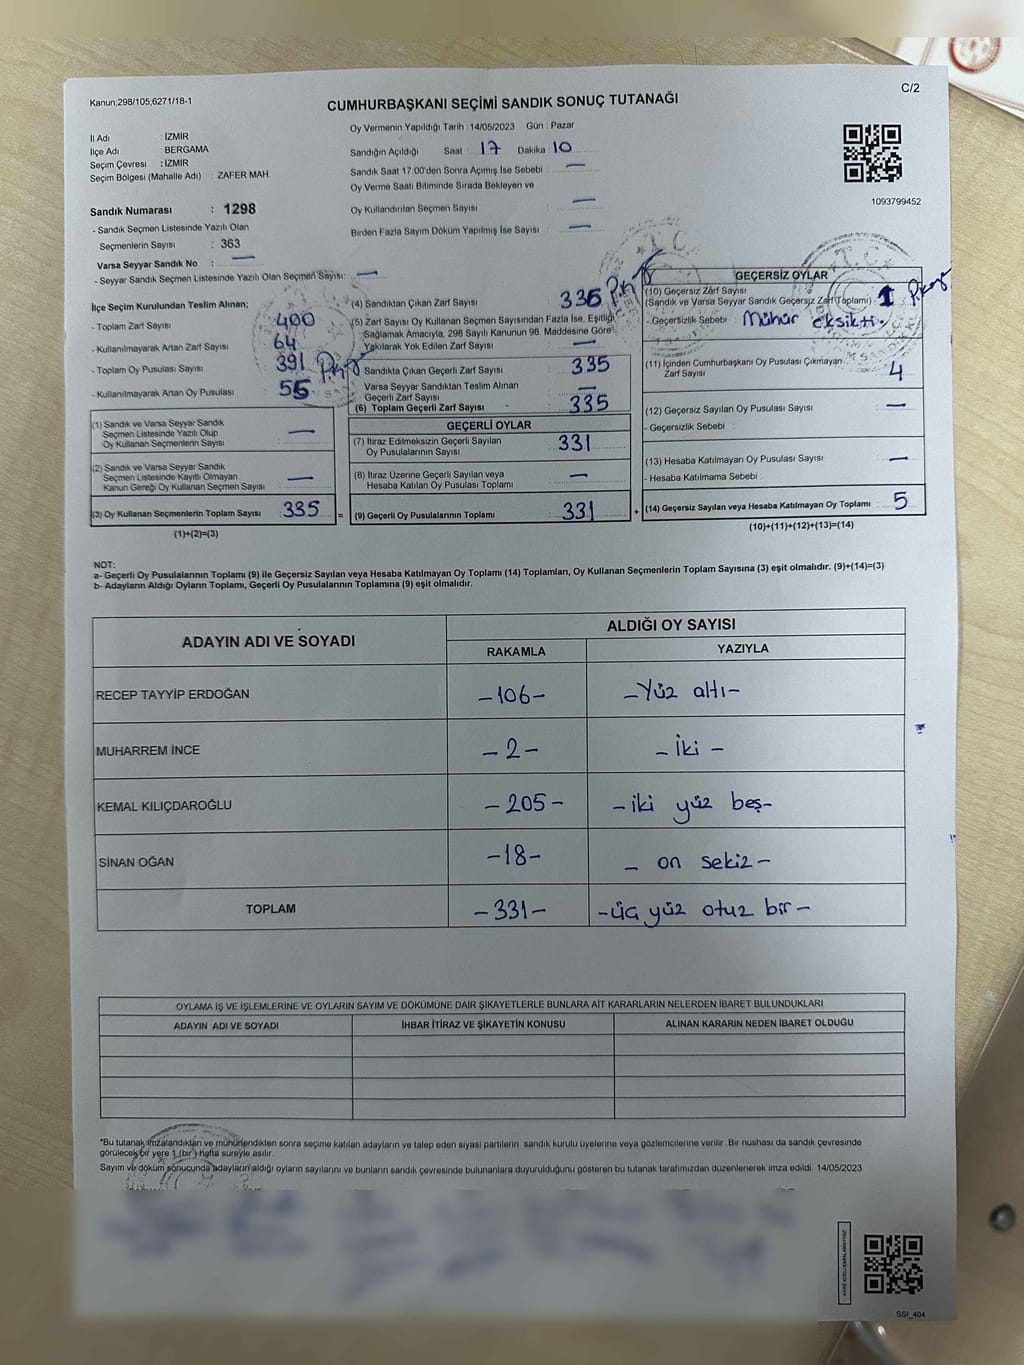 Kanun;298/105;6271/18-1
C/2
CUMHURBAŞKANI SEÇİMİ SANDIK SONUÇ TUTANAĞI
İl Adı : İZMİR
İlçe Adı : BERGAMA
Seçim Çevresi : İZMİR
Seçim Bölgesi (Mahalle Adı) : ZAFER MAH.
Sandık Numarası : 1298
- Sandık Seçmen Listesinde Yazılı Olan
Seçmenlerin Sayısı : 363
Varsa Seyyar Sandık No : —
- Seyyar Sandık Seçmen Listesinde Yazılı Olan Seçmen Sayısı: —
Oy Vermenin Yapıldığı Tarih : 14/05/2023 Gün : Pazar
Sandığın Açıldığı Saat : 17 Dakika : 10
Sandık Saat 17:00'den Sonra Açımış İse Sebebi : —
Oy Verme Saati Bitiminde Sırada Bekleyen ve
Oy Kullandırılan Seçmen Sayısı : —
Birden Fazla Sayım Döküm Yapılmış İse Sayısı : —
1093799452
İlçe Seçim Kurulundan Teslim Alınan;
- Toplam Zarf Sayısı : 400
- Kullanılmayarak Artan Zarf Sayısı : 64
- Toplam Oy Pusulası Sayısı : 391
- Kullanılmayarak Artan Oy Pusulası : 55
(1) Sandık ve Varsa Seyyar Sandık
Seçmen Listesinde Yazılı Olup
Oy Kullanan Seçmenlerin Sayısı : —
(2) Sandık ve Varsa Seyyar Sandık
Seçmen Listesinde Kayıtlı Olmayan
Kanun Gereği Oy Kullanan Seçmen Sayısı : —
(3) Oy Kullanan Seçmenlerin Toplam Sayısı : 335
(1)+(2)=(3)
(4) Sandıktan Çıkan Zarf Sayısı : 336
(5) Zarf Sayısı Oy Kullanan Seçmen Sayısından Fazla İse, Eşitliği
Sağlamak Amacıyla, 298 Sayılı Kanunun 98. Maddesine Göre
Yakılarak Yok Edilen Zarf Sayısı : —
Sandıkta Çıkan Geçerli Zarf Sayısı : 335
Varsa Seyyar Sandıktan Teslim Alınan
Geçerli Zarf Sayısı : —
(6) Toplam Geçerli Zarf Sayısı : 335
GEÇERLİ OYLAR
(7) İtiraz Edilmeksizin Geçerli Sayılan
Oy Pusulalarının Sayısı : 331
(8) İtiraz Üzerine Geçerli Sayılan veya
Hesaba Katılan Oy Pusulası Toplamı : —
= (9) Geçerli Oy Pusulalarının Toplamı : 331 +
GEÇERSİZ OYLAR
(10) Geçersiz Zarf Sayısı
(Sandık ve Varsa Seyyar Sandık Geçersiz Zarf Toplamı) : 1
- Geçersizlik Sebebi : Mühür eksikti.
(11) İçinden Cumhurbaşkanı Oy Pusulası Çıkmayan
Zarf Sayısı : 4
(12) Geçersiz Sayılan Oy Pusulası Sayısı : —
- Geçersizlik Sebebi :
(13) Hesaba Katılmayan Oy Pusulası Sayısı : —
- Hesaba Katılmama Sebebi :
(14) Geçersiz Sayılan veya Hesaba Katılmayan Oy Toplamı : 5
(10)+(11)+(12)+(13)=(14)
NOT:
a- Geçerli Oy Pusulalarının Toplamı (9) ile Geçersiz Sayılan veya Hesaba Katılmayan Oy Toplamı (14) Toplamları, Oy Kullanan Seçmenlerin Toplam Sayısına (3) eşit olmalıdır. (9)+(14)=(3)
b- Adayların Aldığı Oyların Toplamı, Geçerli Oy Pusulalarının Toplamına (9) eşit olmalıdır.
ADAYIN ADI VE SOYADI
ALDIĞI OY SAYISI
RAKAMLA YAZIYLA
RECEP TAYYİP ERDOĞAN -106- -Yüz altı-
MUHARREM İNCE -2- -İki-
KEMAL KILIÇDAROĞLU -205- -iki yüz beş-
SİNAN OĞAN -18- - on sekiz-
TOPLAM -331- -üç yüz otuz bir-
OYLAMA İŞ VE İŞLEMLERİNE VE OYLARIN SAYIM VE DÖKÜMÜNE DAİR ŞİKAYETLERLE BUNLARA AİT KARARLARIN NELERDEN İBARET BULUNDUKLARI
ADAYIN ADI VE SOYADI İHBAR İTİRAZ VE ŞİKAYETİN KONUSU ALINAN KARARIN NEDEN İBARET OLDUĞU
*Bu tutanak imzalandıktan ve mühürlendikten sonra seçime katılan adayların ve talep eden siyasi partilerin sandık kurulu üyelerine veya gözlemcilerine verilir. Bir nüshası da sandık çevresinde
görülecek bir yere 1 (bir) hafta süreyle asılır.
Sayım ve döküm sonucunda adayların aldığı oyların sayılarını ve bunların sandık çevresinde bulunanlara duyurulduğunu gösteren bu tutanak tarafımızdan düzenlenerek imza edildi. 14/05/2023
SSI_404